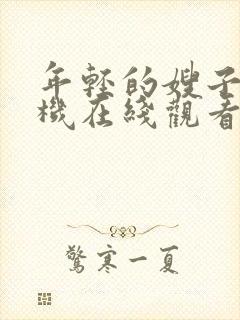 年轻的嫂子
機在綫觀看
驚寒一夏